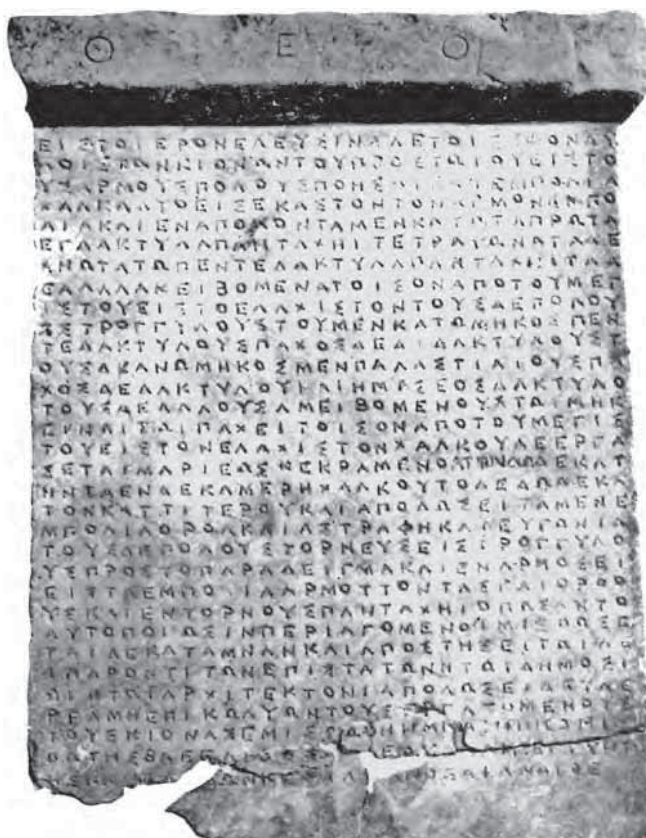 Θ Ε Ο
ΕΙΣΤΟΙΕΡΟΝΕΛΕΥΣΙΝΑΔΕΤΟΙΣΣΦΟΝΔΥ
ΛΟΙΣΤΩΝΚΙΟΝΩΝΤΟΥΠΡΟΣΤΩΙΟΥΕΙΣΤΟ
ΥΣΑΡΜΟΥΣΠΟΛΟΥΣΠΟΗΣΑΙΚΑΙΕΜΠΟΛΙΑ
ΧΑΛΚΑΚΑΤΟΕΙΣΕΚΑΣΤΟΝΤΟΝΑΡΜΟΝΕΜΠΟ
ΛΙΑΚΑΙΕΝΑΠΟΛΟΝΤΑΜΕΝΚΑΤΩΤΑΠΡΩΤΑ
ΕΓΔΑΚΤΥΛΑΠΑΝΤΑΧΗΙΤΕΤΡΑΓΩΝΑΤΑΔΕ
ΑΝΩΤΑΤΩΠΕΝΤΕΔΑΚΤΥΛΑΠΑΝΤΑΧΗΙΤΑΔ
ΕΑΛΛΑΑΜΕΙΒΟΜΕΝΑΤΟΙΣΟΝΑΠΟΤΟΥΜΕΓ
ΙΣΤΟΥΕΙΣΤΟΕΛΑΧΙΣΤΟΝΤΟΥΣΔΕΠΟΛΟΥ
ΣΣΤΡΟΓΓΥΛΟΥΣΤΟΥΜΕΝΚΑΤΩΜΗΚΟΣΠΕΝ
ΤΕΔΑΚΤΥΛΟΥΣΠΑΧΟΣΔΕΔΥΔΑΚΤΥΛΟΥΣΤ
ΟΥΣΔΑΝΩΜΗΚΟΣΜΕΝΠΑΛΑΣΤΙΑΙΟΥΣΠΑ
ΧΟΣΔΕΔΑΚΤΥΛΟΥΚΑΙΗΜΙΣΕΟΣΔΑΚΤΥΛΟ
ΤΟΥΣΔΕΑΛΛΟΥΣΑΜΕΙΒΟΜΕΝΟΥΣΤΩΙΜΗΚ
ΕΙΚΑΙΤΩΙΠΑΧΕΙΤΟΙΣΟΝΑΠΟΤΟΥΜΕΓΙΣ
ΤΟΥΕΙΣΤΟΝΕΛΑΧΙΣΤΟΝΧΑΛΚΟΥΔΕΕΡΓΑ
ΣΕΤΑΙΜΑΡΙΕΩΣΚΕΚΡΑΜΕΝΟΥΤΗΝΔΩΔΕΚΑΤ
ΗΝΤΑΕΝΔΕΚΑΜΕΡΗΧΑΛΚΟΥΤΟΔΕΔΩΔΕΚΑ
ΤΟΝΚΑΤΤΙΤΕΡΟΥΚΑΙΑΠΟΔΩΣΕΙΤΑΜΕΝΕ
ΜΠΟΛΙΑΟΡΘΑΚΑΙΑΣΤΡΑΒΗΚΑΙΕΥΓΩΝΙΑ
ΤΟΥΣΔΕΠΟΛΟΥΣΤΟΡΝΕΥΣΕΙΣΤΡΟΓΓΥΛΟ
ΥΣΠΡΟΣΤΟΠΑΡΑΔΕΙΓΜΑΚΑΙΕΝΑΡΜΟΣΕΙ
ΕΙΣΤΑΕΜΠΟΛΙΑΑΡΜΟΤΤΟΝΤΑΣΚΑΙΟΡΘΟ
ΥΣΚΑΙΕΝΤΟΡΝΟΥΣΠΑΝΤΑΧΗΙΟΠΩΣΑΝΤΟ
ΑΥΤΟΠΟΙΩΣΙΝΠΕΡΙΑΓΟΜΕΝΟΙΜΙΣΘΩΣΕ
ΤΑΙΔΕΚΑΤΑΜΝΑΝΚΑΙΑΠΟΣΤΗΣΕΙΤΩΙΑΕ
ΙΠΑΡΟΝΤΙΤΩΝΕΠΙΣΤΑΤΩΝΗΤΩΙΔΗΜΟΣΙ
ΩΙΗΤΩΙΑΡΧΙΤΕΚΤΟΝΙΑΠΟΔΩΣΕΙΔΕΤΑΕ
ΡΓΑΜΗΕΠΙΚΩΛΥΩΝΤΟΥΣΕΡΓΑΖΟΜΕΝΟΥΣ
ΤΟΥΣΚΙΟΝΑΣΕΜΙΣΘΩΘΗ